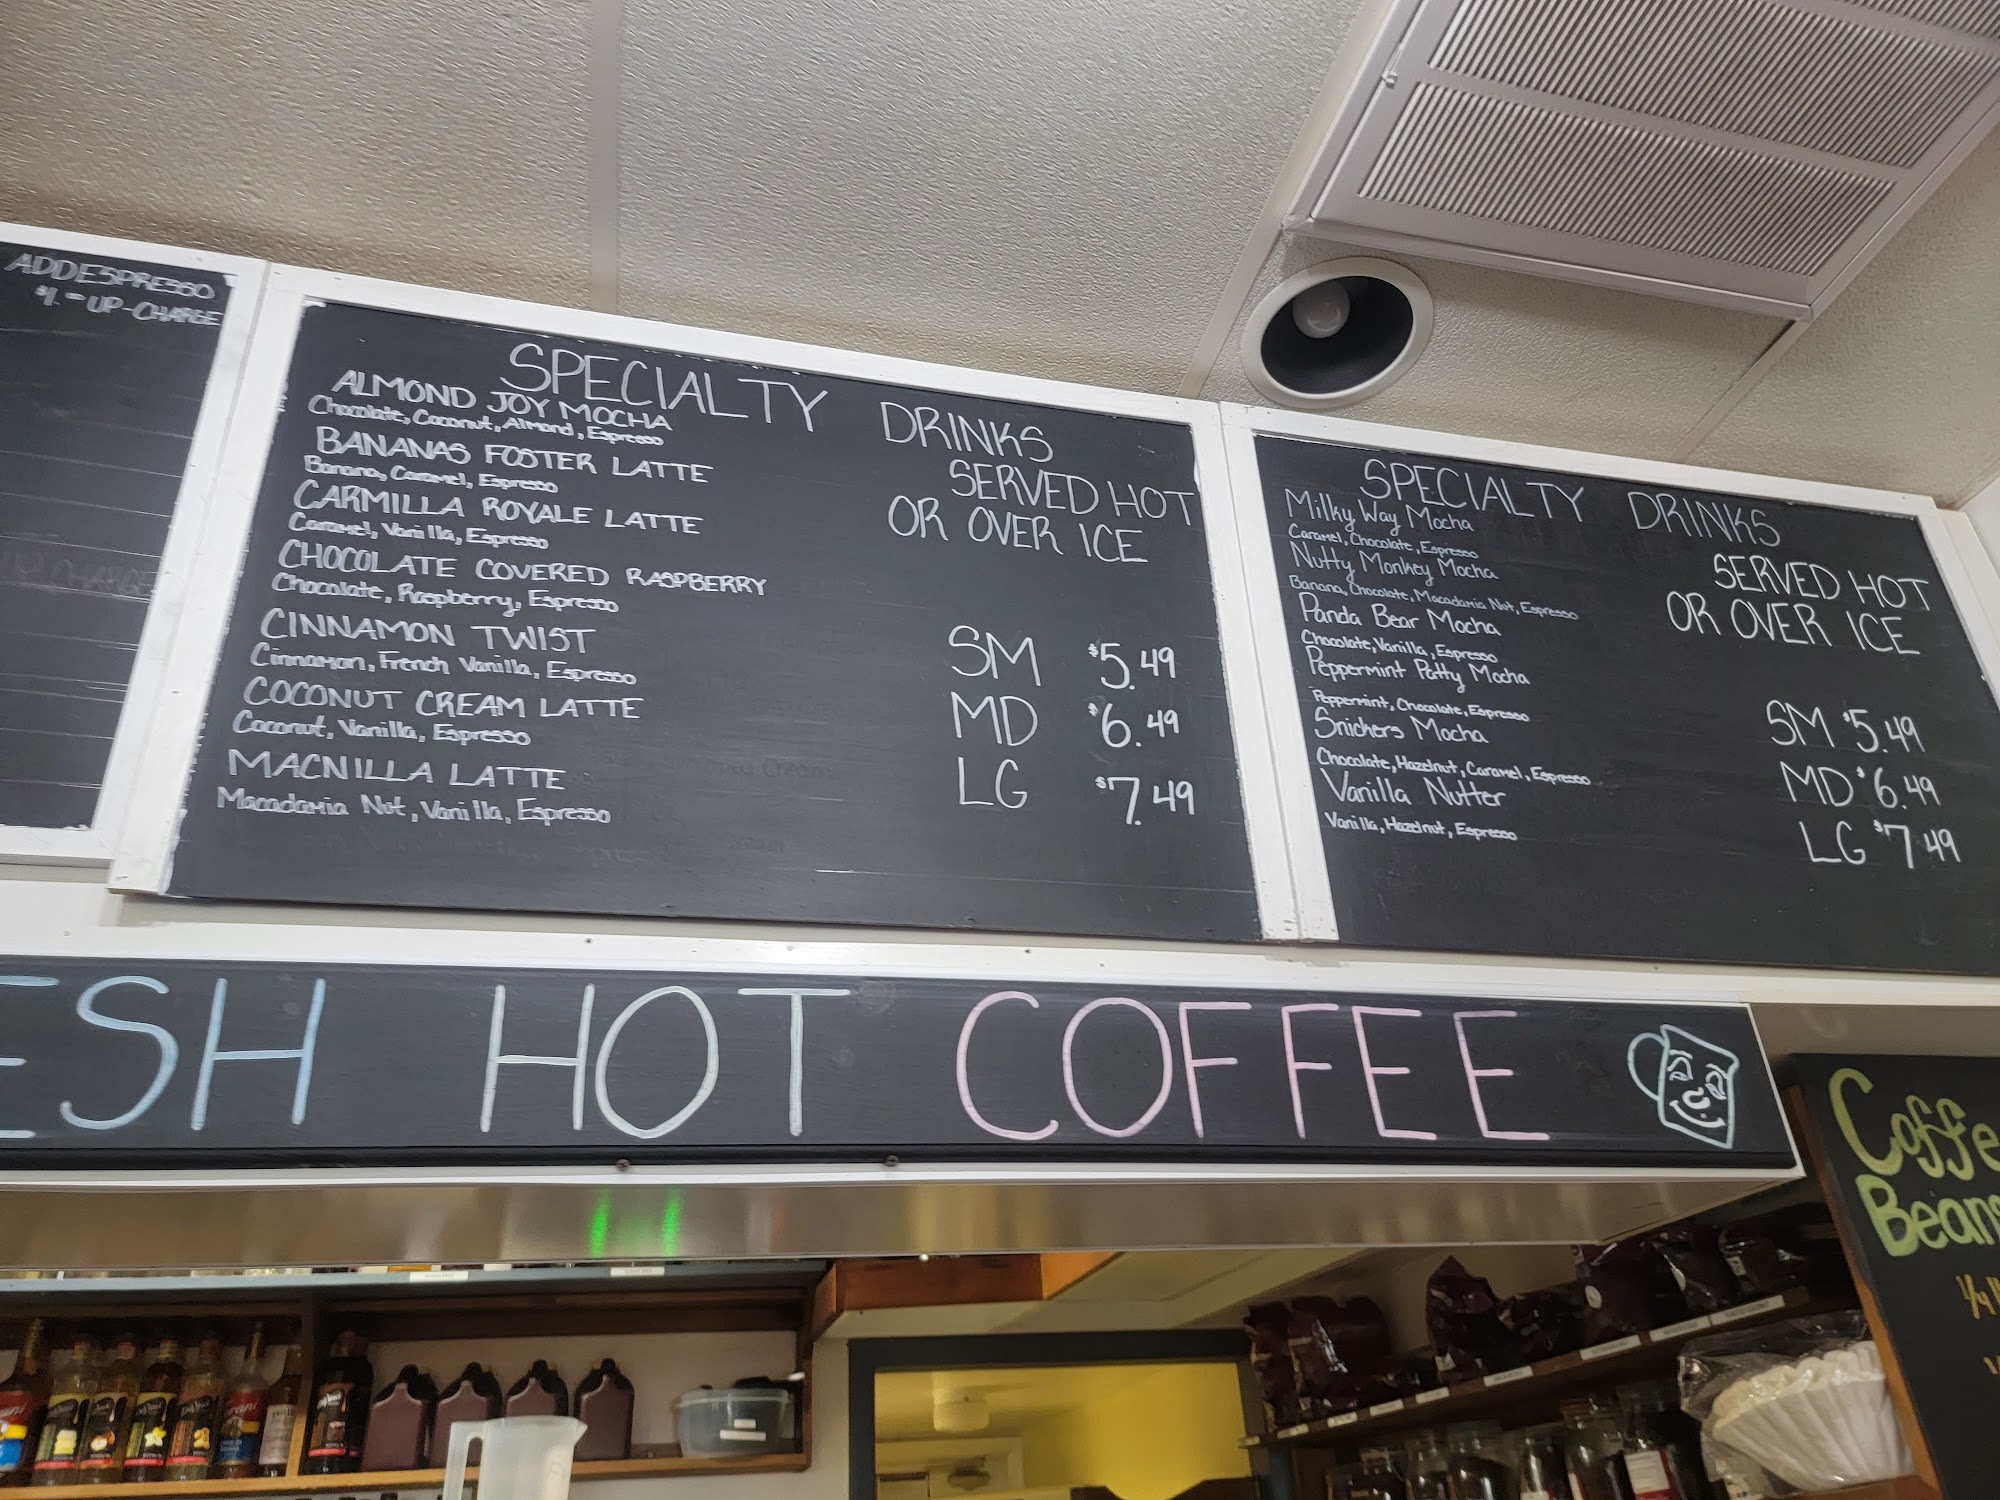 ADD ESPRESSO
$1.— UP-CHARGE
SPECIALTY DRINKS
ALMOND JOY MOCHA
Chocolate, Coconut, Almond, Espresso
BANANAS FOSTER LATTE
Banana, Caramel, Espresso
CARMILLA ROYALE LATTE
Caramel, Vanilla, Espresso
CHOCOLATE COVERED RASPBERRY
Chocolate, Raspberry, Espresso
CINNAMON TWIST
Cinnamon, French Vanilla, Espresso
COCONUT CREAM LATTE
Coconut, Vanilla, Espresso
MACNILLA LATTE
Macadamia Nut, Vanilla, Espresso
SERVED HOT
OR OVER ICE
SM $5.49
MD $6.49
LG $7.49
SPECIALTY DRINKS
Milky Way Mocha
Caramel, Chocolate, Espresso
Nutty Monkey Mocha
Banana, Chocolate, Macadamia Nut, Espresso
Panda Bear Mocha
Chocolate, Vanilla, Espresso
Peppermint Patty Mocha
Peppermint, Chocolate, Espresso
Snickers Mocha
Chocolate, Hazelnut, Caramel, Espresso
Vanilla Nutter
Vanilla, Hazelnut, Espresso
SERVED HOT
OR OVER ICE
SM $5.49
MD $6.49
LG $7.49
ESH HOT COFFEE
Coffe
Beans
1/4